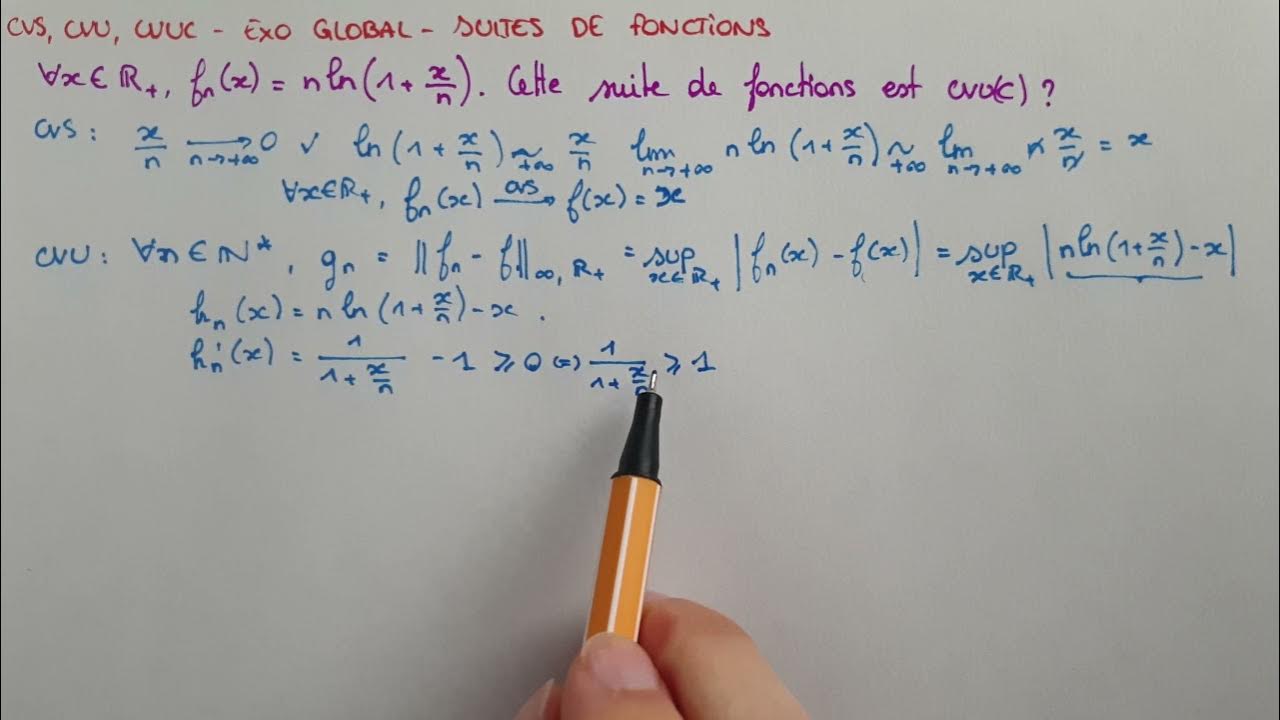 CVS, CVU, CVUC - EXO GLOBAL - SUITES DE FONCTIONS
∀x∈ℝ₊, fₙ(x) = n ln(1+x/n). Cette suite de fonctions est CVU(C) ?
CVS : x/n →(n→+∞) 0 ✓ ln(1+x/n) ~(+∞) x/n lim(n→+∞) n ln(1+x/n) ~(+∞) lim(n→+∞) n x/n = x
∀x∈ℝ₊, fₙ(x) →(CVS) f(x) = x
CVU : ∀n∈ℕ*, gₙ = ‖fₙ - f‖∞,ℝ₊ = sup(x∈ℝ₊) |fₙ(x) - f(x)| = sup(x∈ℝ₊) |n ln(1+x/n) - x|
hₙ(x) = n ln(1+x/n) - x.
hₙ'(x) = 1/(1+x/n) - 1 ⩾ 0 (=) 1/(1+x/n) ⩾ 1